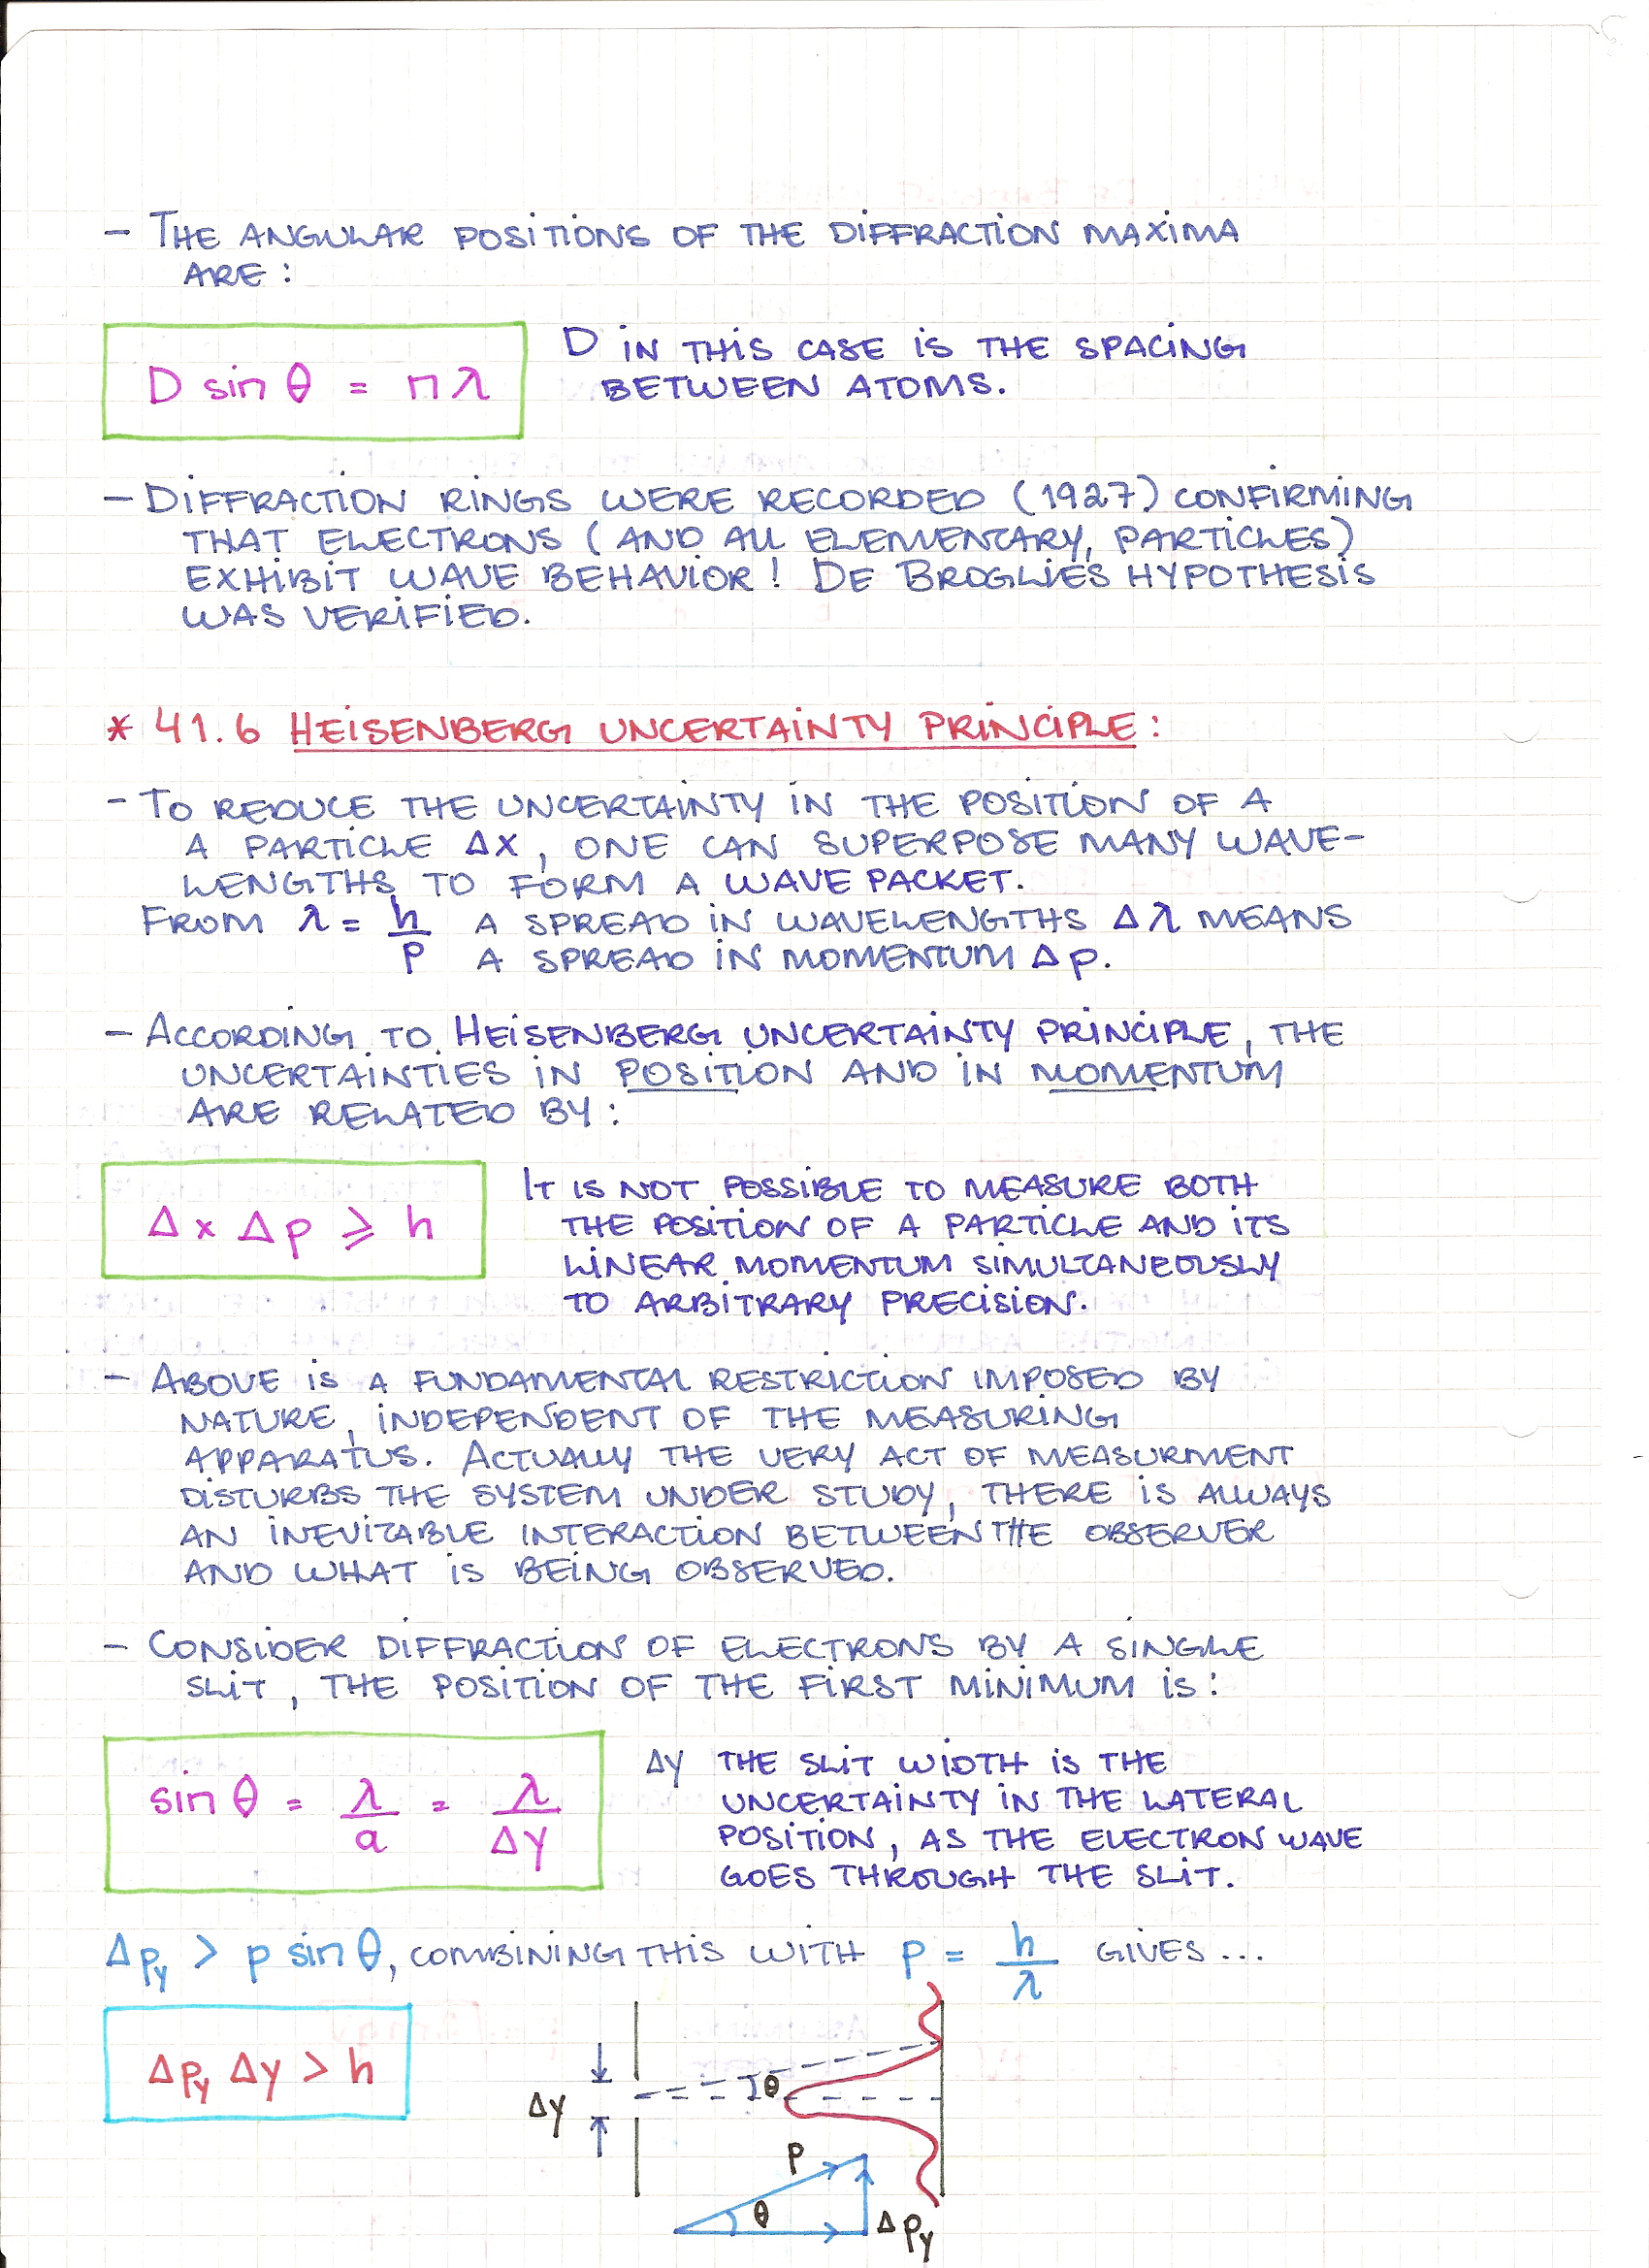 - THE ANGULAR POSITIONS OF THE DIFFRACTION MAXIMA
ARE :
D sin θ = n λ
D IN THIS CASE IS THE SPACING
BETWEEN ATOMS.
- DIFFRACTION RINGS WERE RECORDED (1927) CONFIRMING
THAT ELECTRONS (AND ALL ELEMENTARY, PARTICLES)
EXHIBIT WAVE BEHAVIOR! DE BROGLIES HYPOTHESIS
WAS VERIFIED.
* 41.6 HEISENBERG UNCERTAINTY PRINCIPLE :
- TO REDUCE THE UNCERTAINTY IN THE POSITION OF A
A PARTICLE Δx, ONE CAN SUPERPOSE MANY WAVE-
LENGTHS TO FORM A WAVE PACKET.
FROM λ = h/p A SPREAD IN WAVELENGTHS Δλ MEANS
A SPREAD IN MOMENTUM Δp.
- ACCORDING TO HEISENBERG UNCERTAINTY PRINCIPLE, THE
UNCERTAINTIES IN POSITION AND IN MOMENTUM
ARE RELATED BY :
Δx Δp ⩾ h
IT IS NOT POSSIBLE TO MEASURE BOTH
THE POSITION OF A PARTICLE AND ITS
LINEAR MOMENTUM SIMULTANEOUSLY
TO ARBITRARY PRECISION.
- ABOVE IS A FUNDAMENTAL RESTRICTION IMPOSED BY
NATURE, INDEPENDENT OF THE MEASURING
APPARATUS. ACTUALLY THE VERY ACT OF MEASURMENT
DISTURBS THE SYSTEM UNDER STUDY, THERE IS ALWAYS
AN INEVITABLE INTERACTION BETWEEN THE OBSERVER
AND WHAT IS BEING OBSERVED.
- CONSIDER DIFFRACTION OF ELECTRONS BY A SINGLE
SLIT, THE POSITION OF THE FIRST MINIMUM IS :
sin θ = λ/a = λ/Δy
Δy THE SLIT WIDTH IS THE
UNCERTAINTY IN THE LATERAL
POSITION, AS THE ELECTRON WAVE
GOES THROUGH THE SLIT.
Δpy > p sin θ, COMBINING THIS WITH p = h/λ GIVES...
Δpy Δy > h
Δy
θ
p
θ
Δpy